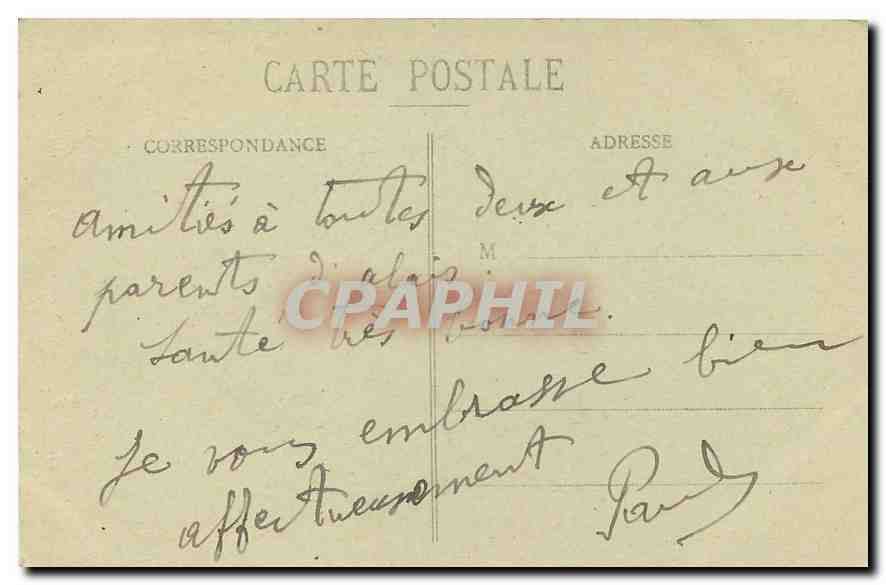 CARTE POSTALE
CORRESPONDANCE
ADRESSE
amitiés à toutes deux et aux
M
parents d'alais.
CPAPHIL
santé très bonne.
Je vous embrasse bien
affectueusement
Paul